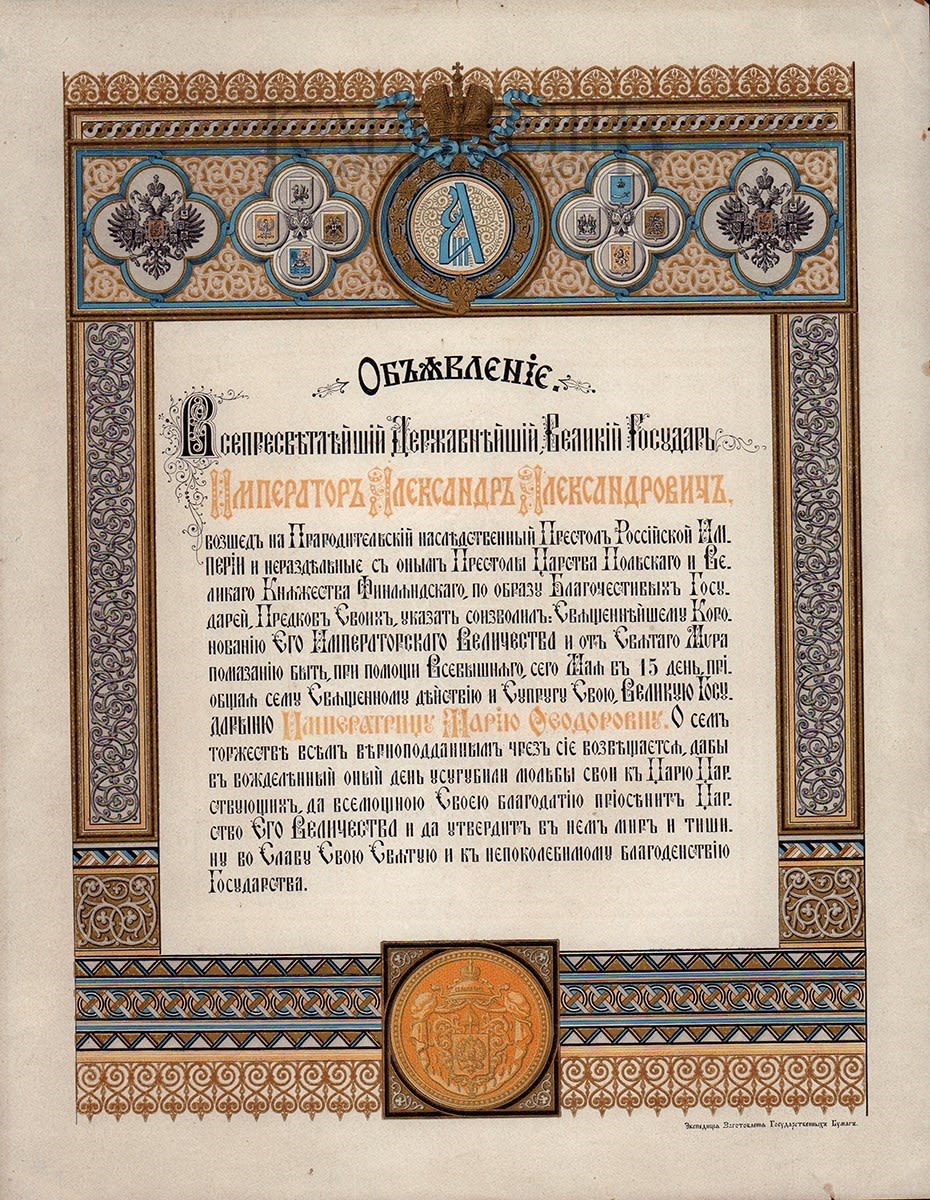 Объѧвленіе.
Всепресвѣтлѣйшій Державнѣйшій Великій Государь
Императоръ Александръ Александровичъ,
возшедъ на Прародительскій наслѣдственный Престолъ Россійской Им-
періи и нераздѣльные съ онымъ Престолы Царства Польскаго и Ве-
ликаго Кнѧжества Финлѧндскаго, по образу Благочестивыхъ Госу-
дарей, Предковъ Своихъ, указать соизволилъ: Свѧщеннѣйшему Коро-
нованію Его Императорскаго Величества и отъ Свѧтаго Мѵра
помазанію быть, при помощи Всевышнѧго, сего Маѧ въ 15 день, прі-
общаѧ сему Свѧщенному дѣйствію и Супругу Свою, Великую Госу-
дарыню Императрицу Марію Феодоровну. О семъ
торжествѣ всѣмъ вѣрноподданнымъ чрезъ сіе возвѣщаетсѧ, дабы
въ вожделѣнный оный день усугубили мольбы свои къ Царю Цар-
ствующихъ, да всемощною Своею благодатію пріосѣнитъ Цар-
ство Его Величества и да утвердитъ въ немъ миръ и тиши-
ну во Славу Свою Свѧтую и къ непоколебимому благоденствію
Государства.
Экспедиціѧ Заготовленіѧ Государственныхъ Бумагъ.